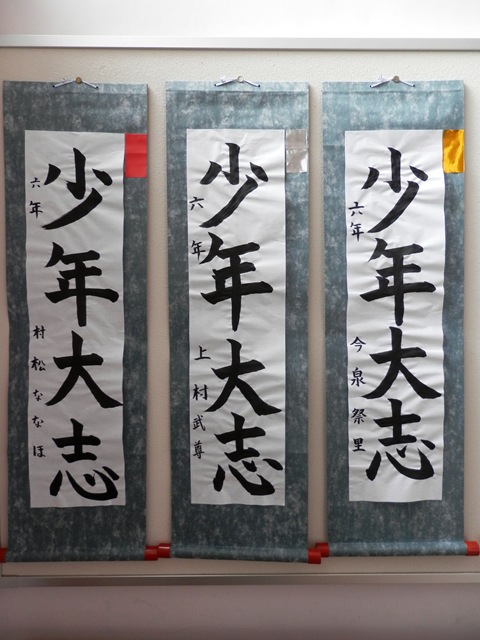 少年大志
六年 今泉祭里
少年大志
六年 上村武尊
少年大志
六年 村松ななほ